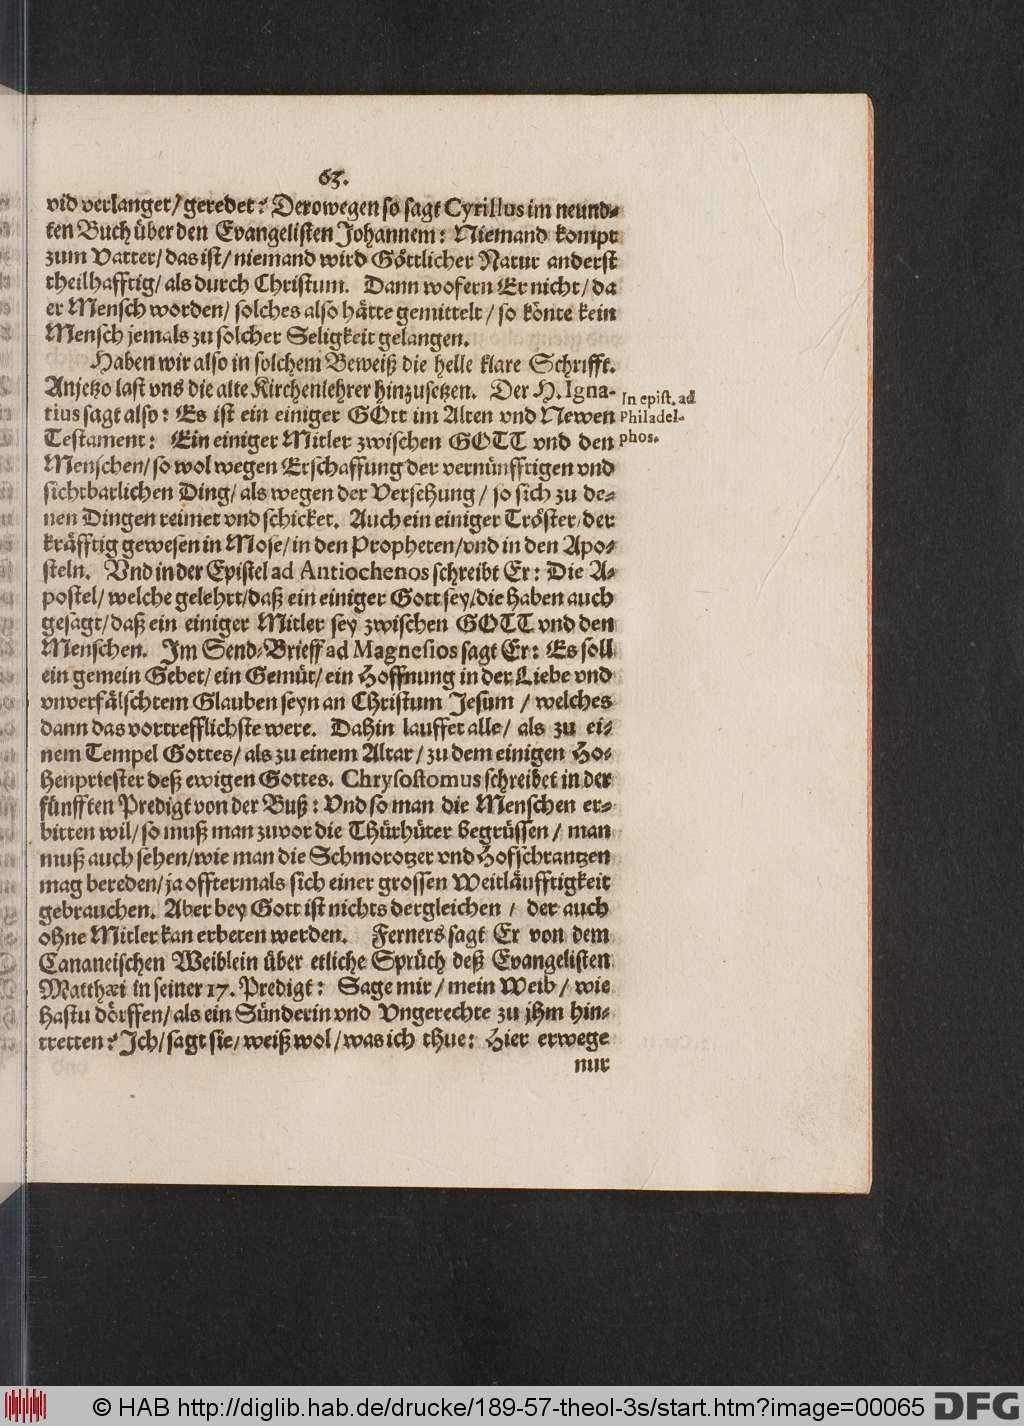 63.
vid verlanget/ geredet? Derowegen so sagt Cyrillus im neund-
ten Buch über den Evangelisten Johannem: Niemand kompt
zum Vatter/ das ist/ niemand wird Göttlicher Natur anderst
theilhafftig/ als durch Christum. Dann wofern Er nicht/ da
er Mensch worden/ solches also hätte gemittelt/ so könte kein
Mensch jemals zu solcher Seligkeit gelangen.
Haben wir also in solchem Beweiß die helle klare Schrifft.
Anjetzo last vns die alte Kirchenlehrer hinzusetzen. Der H. Igna-
tius sagt also: Es ist ein einiger GOtt im Alten vnd Newen
Testament: Ein einiger Mitler zwischen GOTT vnd den
Menschen/ so wol wegen Erschaffung der vernünfftigen vnd
sichtbarlichen Ding/ als wegen der Versehung/ so sich zu de-
nen Dingen reimet vnd schicket. Auch ein einiger Tröster/ der
kräfftig gewesen in Mose/ in den Propheten/ vnd in den Apo-
steln. Vnd in der Epistel ad Antiochenos schreibt Er: Die A-
postel/ welche gelehrt/ daß ein einiger Gott sey/ die haben auch
gesagt/ daß ein einiger Mitler sey zwischen GOTT vnd den
Menschen. Im Send-Brieff ad Magnesios sagt Er: Es soll
ein gemein Gebet/ ein Gemüt/ ein Hoffnung in der Liebe vnd
vnverfälschtem Glauben seyn an Christum Jesum/ welches
dann das vortrefflichste were. Dahin lauffet alle/ als zu ei-
nem Tempel Gottes/ als zu einem Altar/ zu dem einigen Ho-
henpriester deß ewigen Gottes. Chrysostomus schreibet in der
fünfften Predigt von der Buß: Vnd so man die Menschen er-
bitten wil/ so muß man zuvor die Thürhüter begrüssen/ man
muß auch sehen/ wie man die Schmorotzer vnd Hofschrantzen
mag bereden/ ja offtermals sich einer grossen Weitläufftigkeit
gebrauchen. Aber bey Gott ist nichts dergleichen/ der auch
ohne Mitler kan erbeten werden. Ferners sagt Er von dem
Cananeischen Weiblein über etliche Sprüch deß Evangelisten
Matthæi in seiner 17. Predigt: Sage mir/ mein Weib/ wie
hastu dörffen/ als ein Sünderin vnd Vngerechte zu jhm hin-
tretten? Ich/ sagt sie/ weiß wol/ was ich thue: Hier erwege
nur
In epist. ad
Philadel-
phos.
© HAB http://diglib.hab.de/drucke/189-57-theol-3s/start.htm?image=00065
DFG